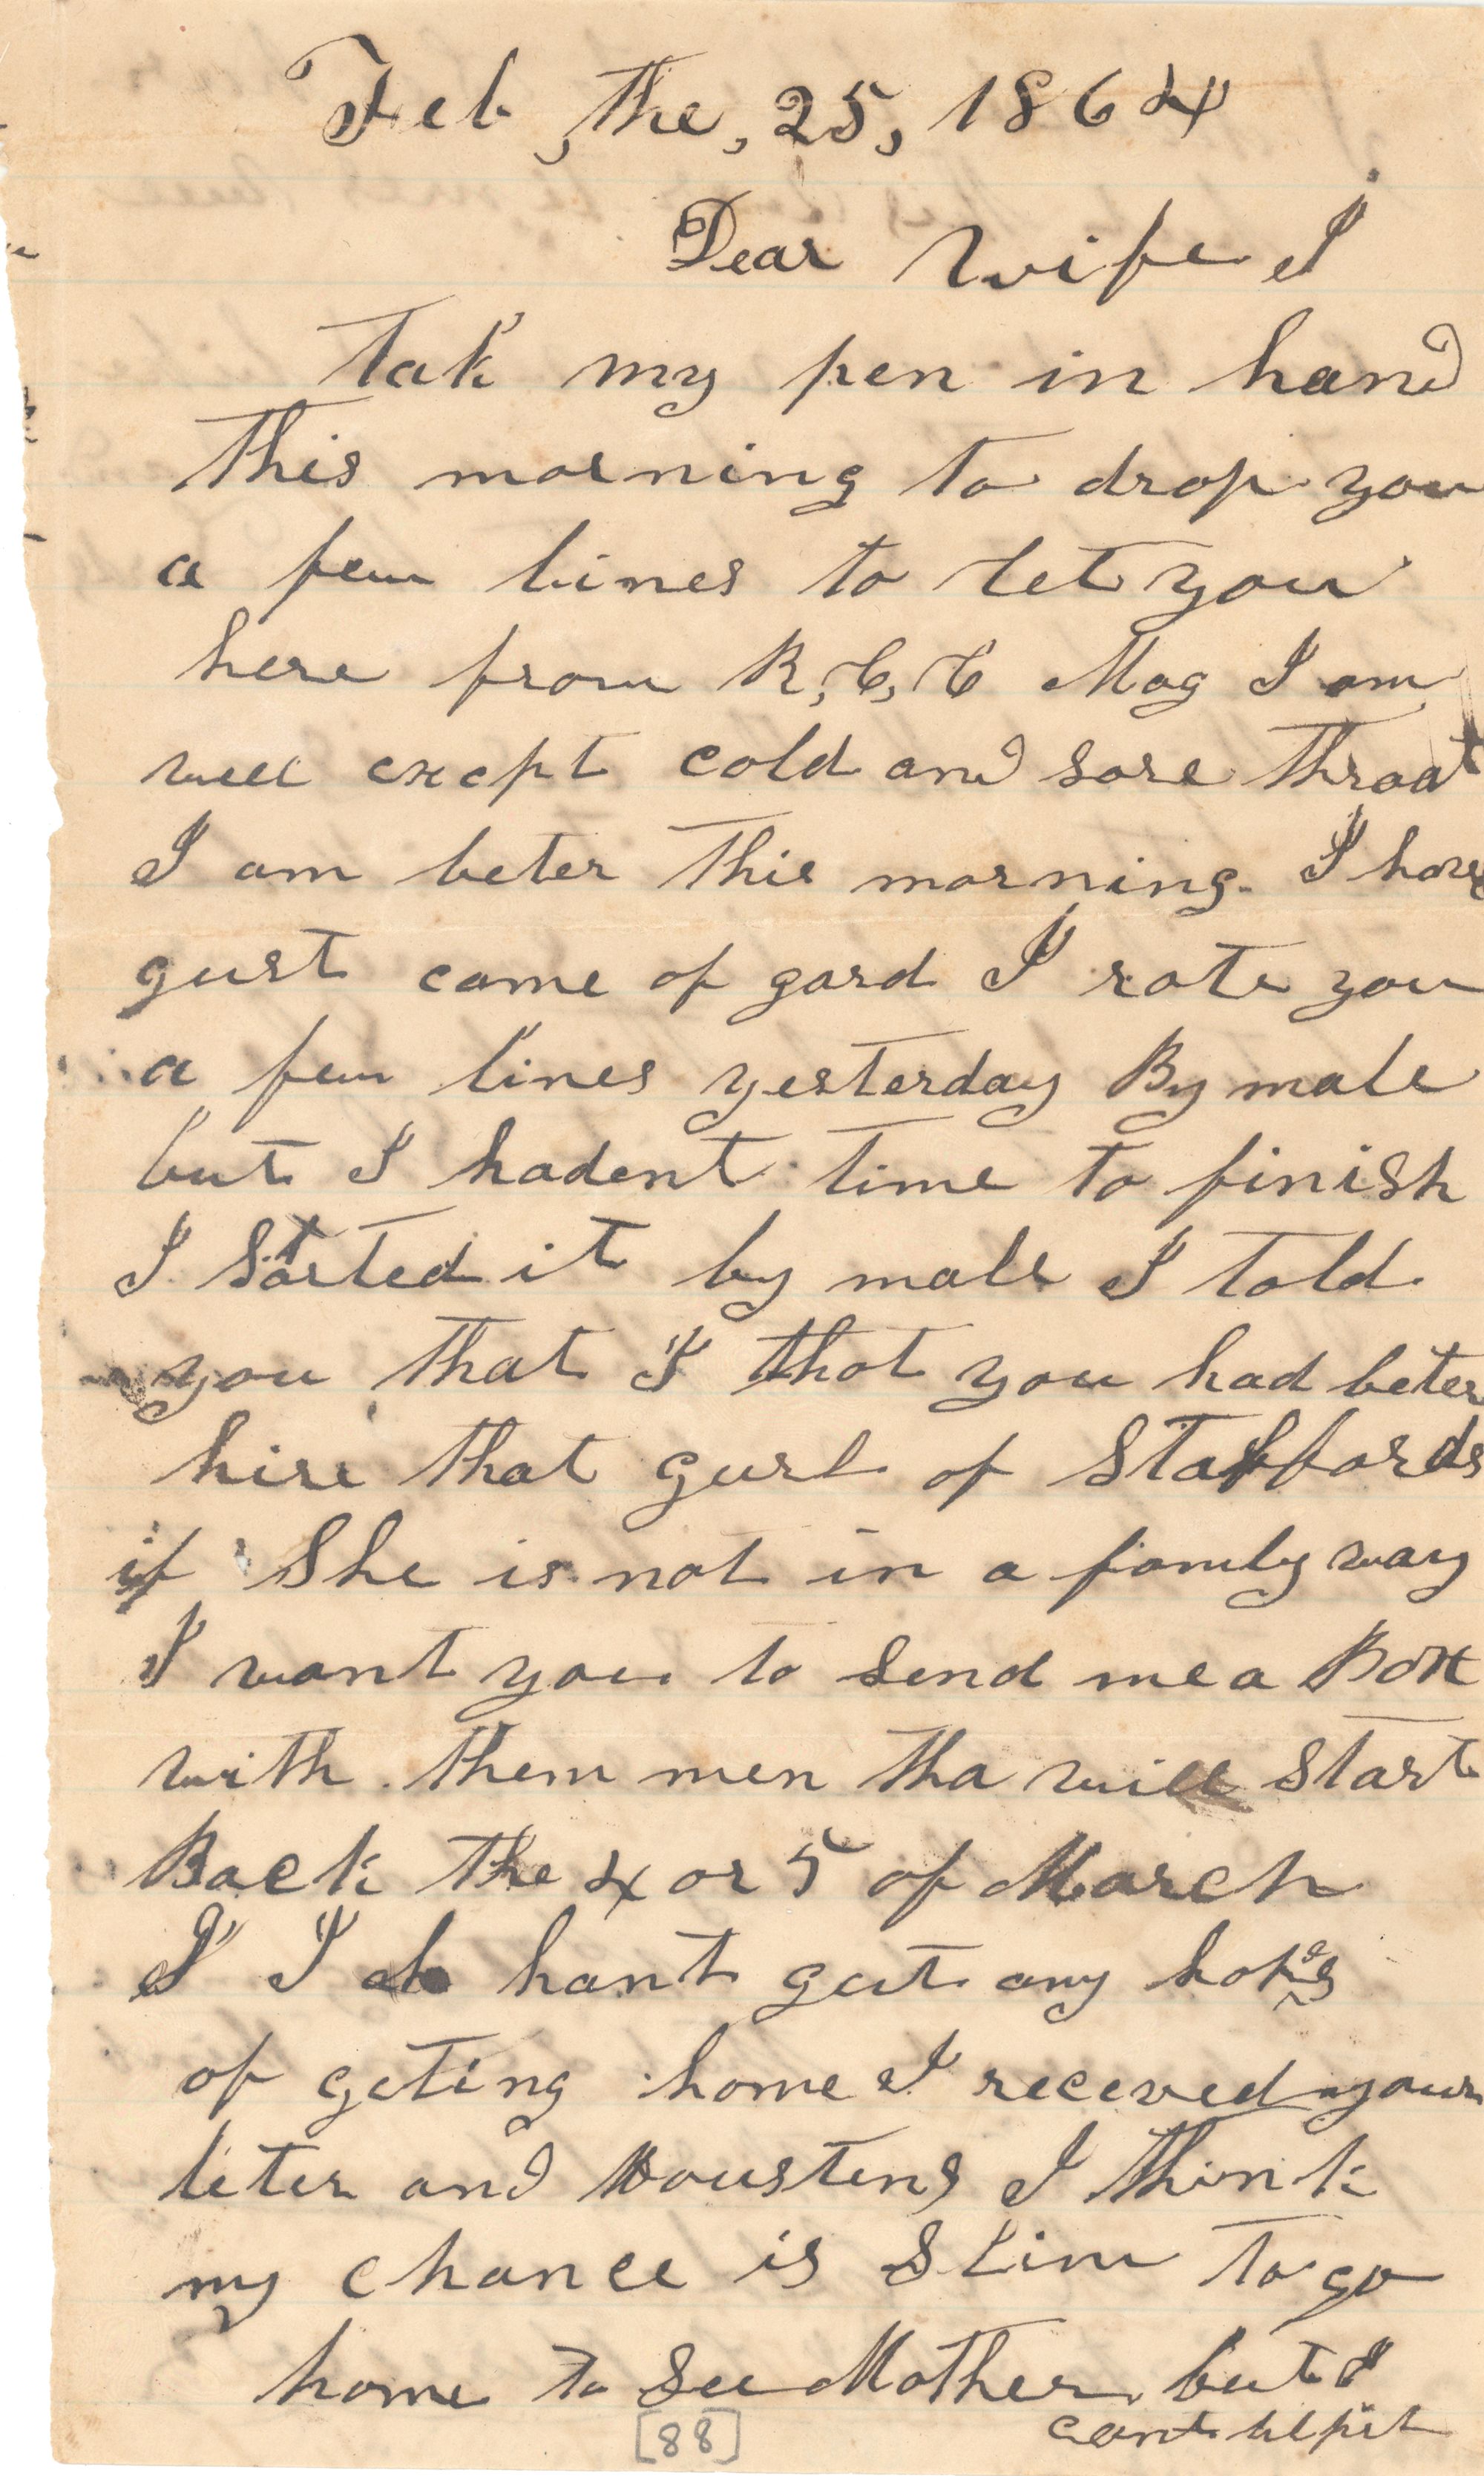 Feb, the, 25, 1864
Dear Wife I
tak my pen in hand
this morning to drop you
a few lines to let you
here from R, C, C Mag I am
well except cold and sore throat
I am beter this morning. I have
gust come of gard I rote you
a few lines yesterday By male
but I hadent time to finish
I started it by male I told
you that I thot you had beter
hire that gurl of Staffords
if She is not in a famly way
I want you to send me a Box
with them men tha will start
Back the 4 or 5 of March
I I do hant get any hopes
of geting home I receved your
leter and Houstens I think
my chance is slim to go
home to See Mother but I
cant helpit
[88]